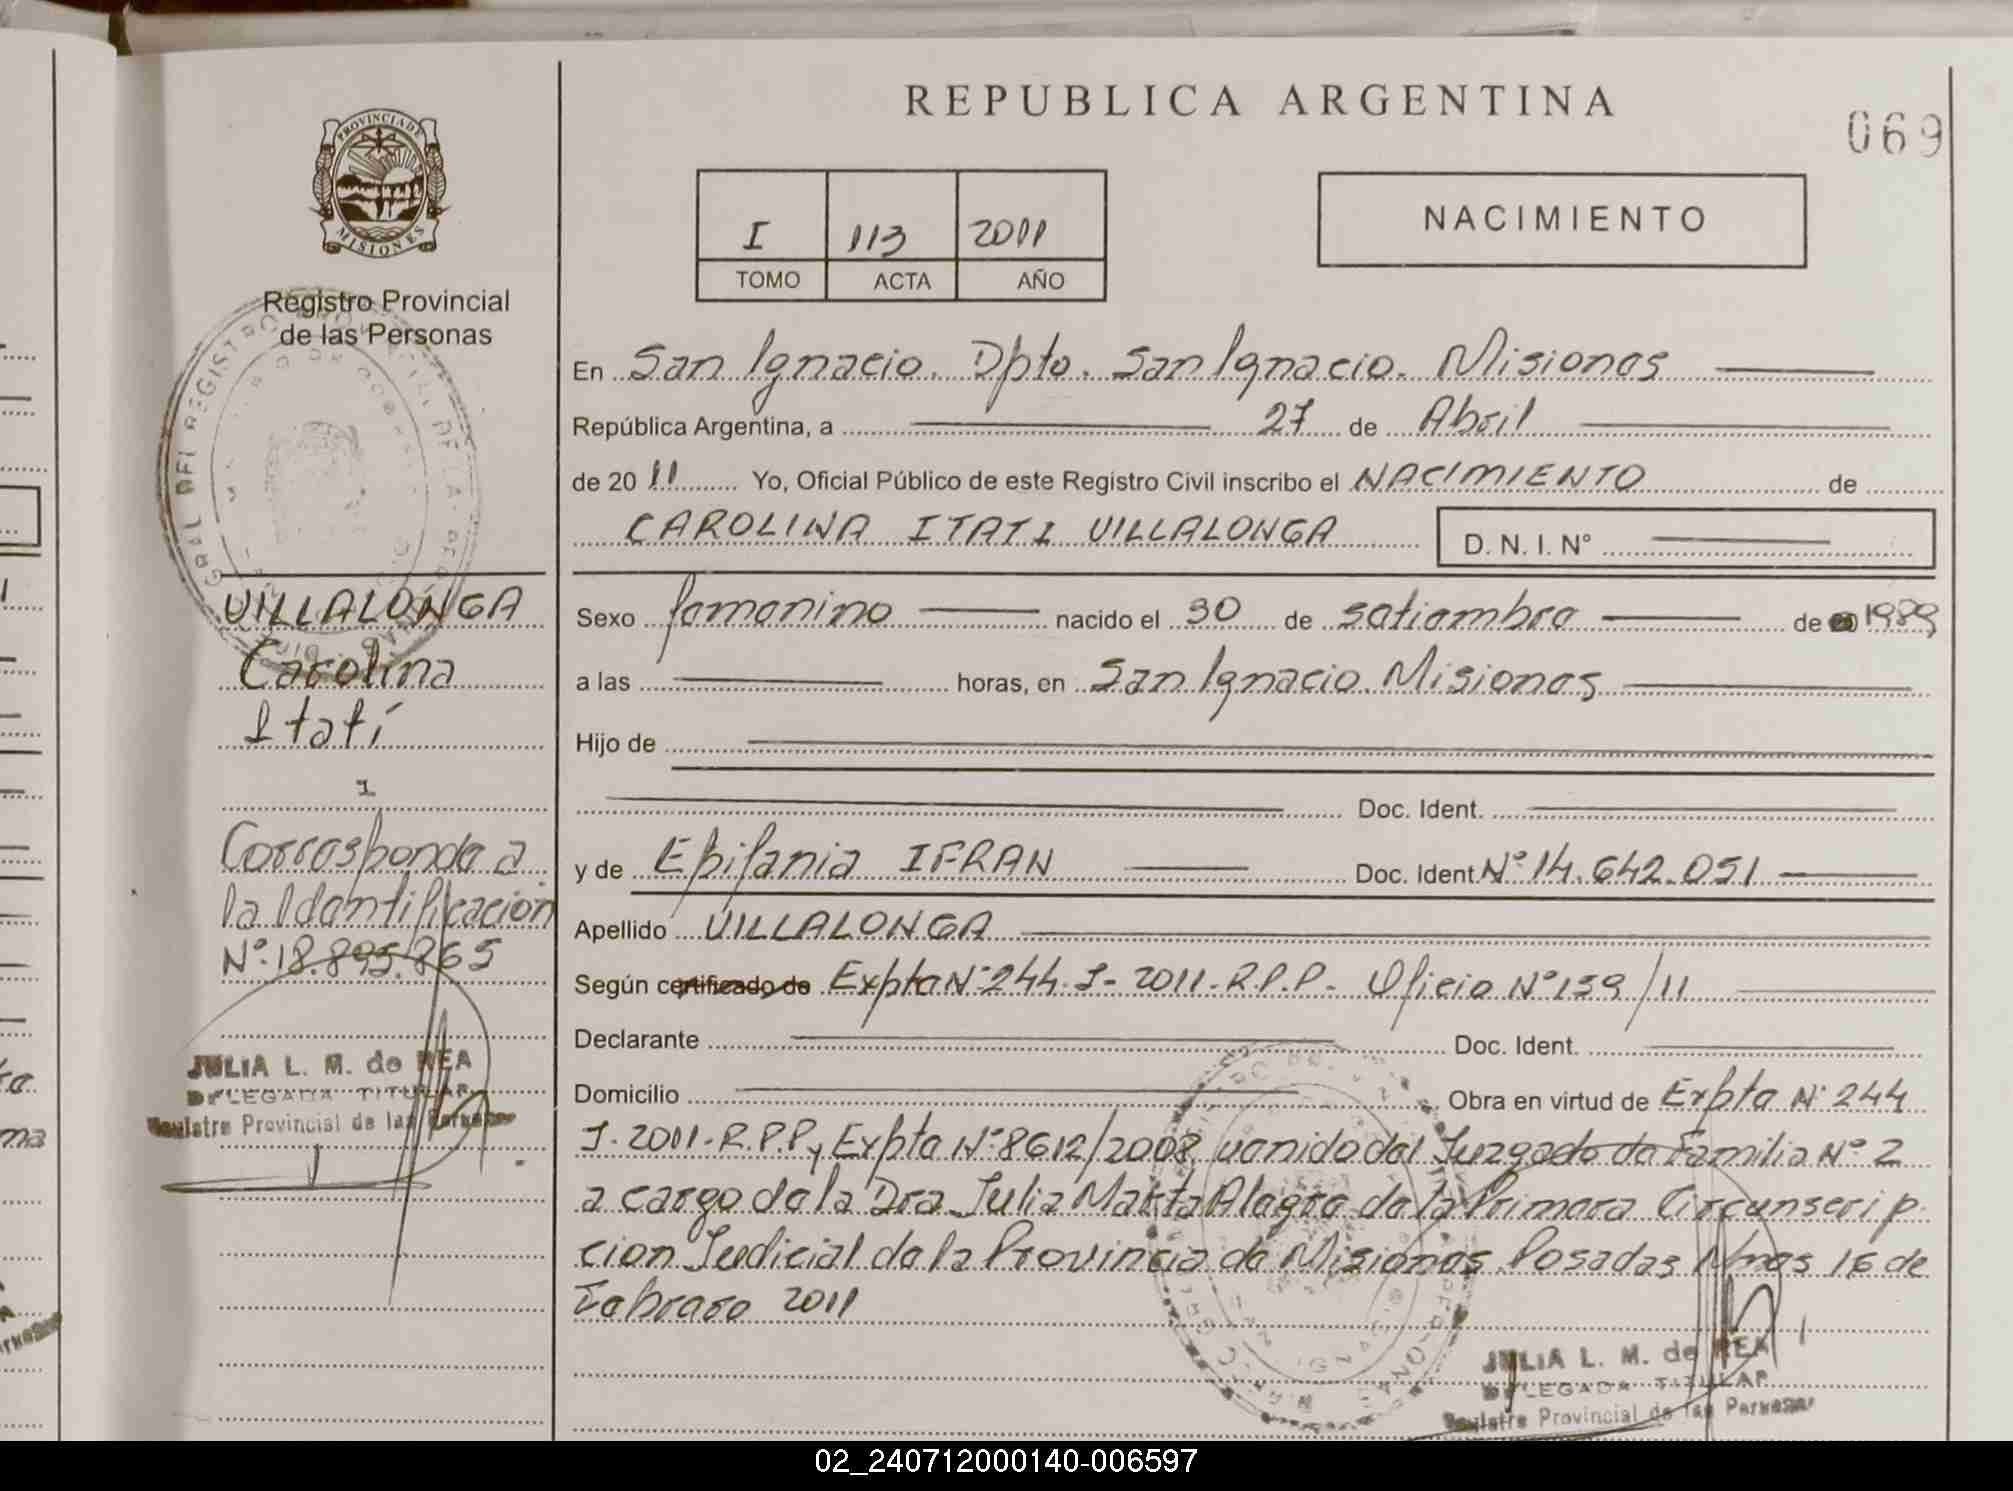 REPUBLICA ARGENTINA
069
PROVINCIA DE
MISIONES
Registro Provincial
de las Personas
I 113 2011
TOMO ACTA AÑO
NACIMIENTO
En San Ignacio. Dpto. San Ignacio. Misiones
República Argentina, a 27 de Abril
de 20 11 Yo, Oficial Público de este Registro Civil inscribo el NACIMIENTO de
CAROLINA ITATI VILLALONGA D. N. I. N°
Sexo femenino nacido el 30 de setiembre de 1989
a las horas, en San Ignacio. Misiones
Hijo de
Doc. Ident.
y de Epifania IFRAN Doc. Ident. N° 14.642.051
Apellido VILLALONGA
Según certificado de Expte N° 244. I- 2011- R.P.P- Oficio N° 159/11
Declarante Doc. Ident.
Domicilio Obra en virtud de Expte N° 244
I- 2011- R.P.P y Expte N° 8612/2008 venido del Juzgado de Familia N° 2
a cargo de la Dra. Julia Marta Alegre de la Primera Circunscrip
cion Judicial de la Provincia de Misiones. Posadas Mnes 16 de
Febrero 2011
JULIA L. M. de REA
DELEGADA TITULAR
Registro Provincial de las Personas
VILLALONGA
Carolina
Itatí
1
Corresponde a
la Identificación
N° 18.895.865
JULIA L. M. de REA
DELEGADA TITULAR
Registro Provincial de las Personas
02_240712000140-006597